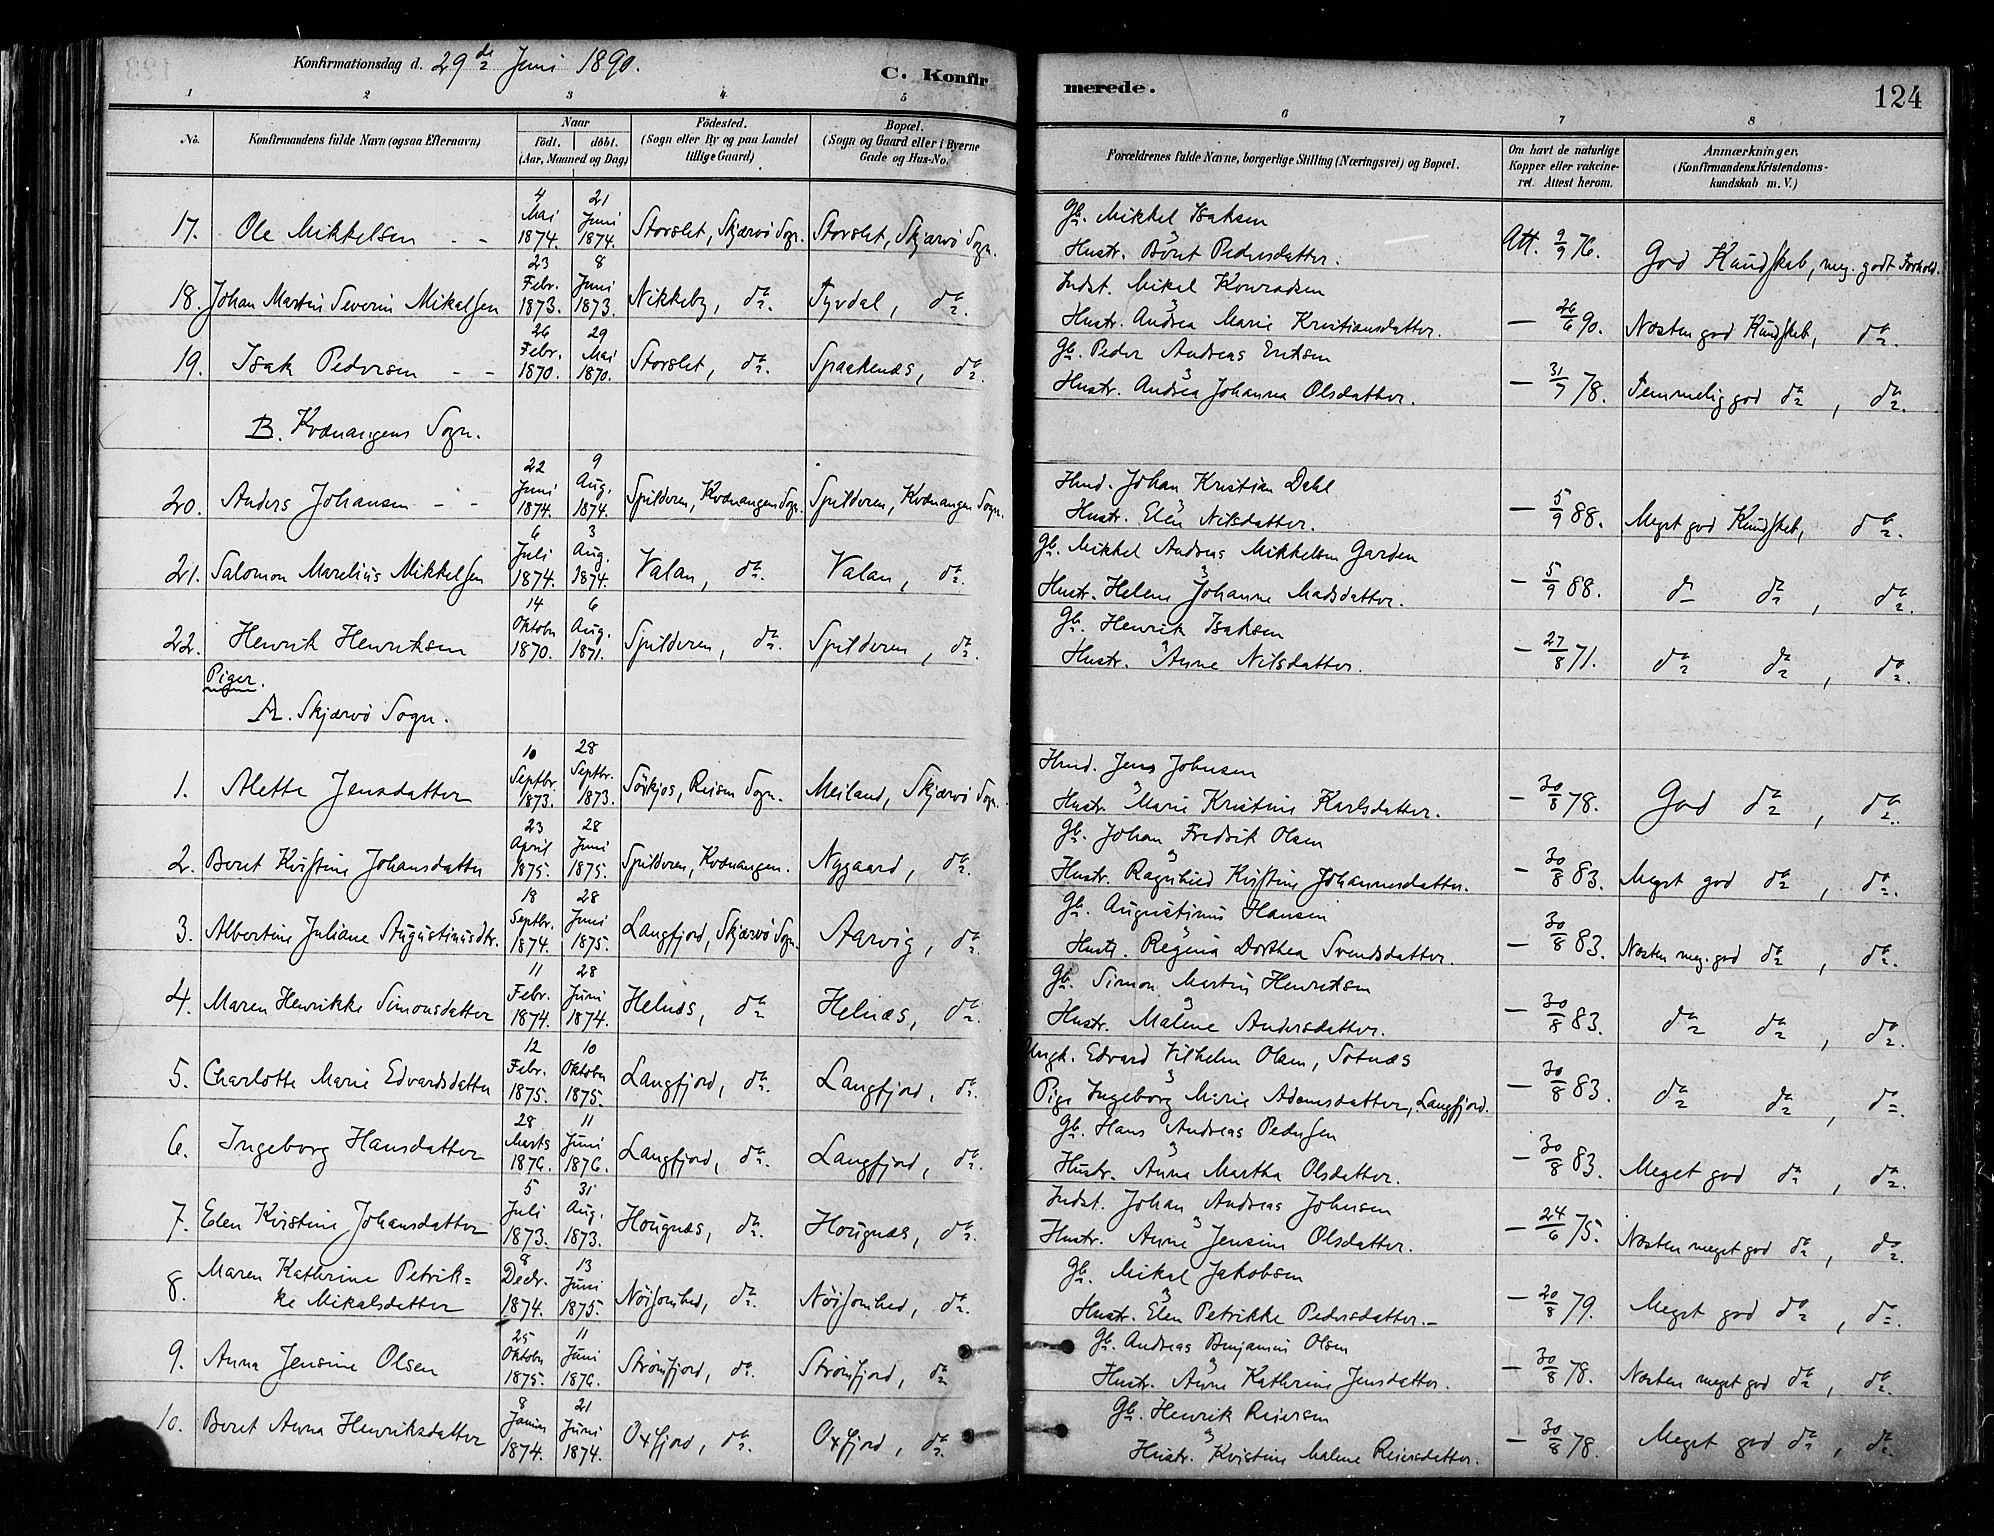 Konfirmationsdag d. 29de Juni 1890.
C. Konfirmerede.
124
1 2 3 4 5 6 7 8
No. Konfirmandens fulde Navn (ogsaa Efternavn) Naar födt. döbt. (Aar, Maaned og Dag) Födested. (Sogn eller By og paa Landet tillige Gaard) Bopæl. (Sogn og Gaard eller i Byerne Gade og Hus-No. Forældrenes fulde Navne, borgerlige Stilling (Næringsvei) og Bopæl. Om havt de naturlige Kopper eller vakcineret. Attest herom. Anmærkninger. (Konfirmandens Kristendomskundskab m. V.)
17. Ole Mikkelsen - - 4 Mai 1874. 21 Juni 1874. Storslet, Skjærvö Sogn. Storslet, Skjærvö Sogn. Gb. Mikkel Isaksen
Hustr. Beret Pedersdatter. Att. 9/9 76. God Kundskab, meg. godt Forhold.
18. Johan Martin Severin Mikalsen 23 Febr. 1873. 8 Juni 1873. Nikkeby, do. Tyvdal, do. Indst. Mikal Konradsen
Hustr. Andrea Marie Kristiansdatter. — 26/6 90. Næsten god Kundskab, do.
19. Isak Pedersen - - 26 Febr. 1870. 29 Mai 1870. Storslet, do. Spaakenæs, do. Gb. Peder Andreas Eriksen
Hustr. Andrea Johanna Olsdatter. — 31/7 78. Temmelig god do, do.
B. Kvænangens Sogn.
20. Anders Johansen - - 22 Juni 1874. 9 Aug. 1874. Spilderen, Kvænangens Sogn. Spilderen, Kvænangen Sogn. Hmd. Johan Kristian Dahl
Hustr. Elen Nilsdatter. — 5/9 88. Meget god Kundskab, do.
21. Salomon Marelius Mikkelsen 6 Juli 1874. 3 Aug. 1874. Valan, do. Valan, do. Gb. Mikkel Andreas Mikkelsen Garden
Hustr. Helene Johanne Madsdatter. — 5/9 88. do do, do.
22. Henrik Henriksen 14 Oktober 1870. 6 Aug. 1871. Spilderen, do. Spilderen, do. Gb. Henrik Isaksen
Hustr. Anne Nilsdatter. — 27/8 71. do do, do.
Piger.
A. Skjærvö Sogn.
1. Alette Jensdatter 10 Septbr. 1873. 28 Septbr. 1873. Sörkjos, Reisen Sogn. Meiland, Skjærvö Sogn. Hmd. Jens Johnsen
Hustr. Marie Kristine Karlsdatter. — 30/8 78. God do, do.
2. Beret Kristine Johansdatter 23 April 1875. 28 Juni 1875. Spilderen, Kvænangen. Nygaard, do. Gb. Johan Fredrik Olsen
Hustr. Ragnhild Kristine Johannesdatter. — 30/8 83. Meget god do, do.
3. Albertine Juliane Augustinusdtr. 18 Septbr. 1874. 28 Juni 1875. Langfjord, Skjærvö Sogn. Aarvig, do. Gb. Augustinus Hansen
Hustr. Regina Dorthea Svendsdatter. — 30/8 83. Næsten meg. god do, do.
4. Maren Henrikke Simonsdatter 11 Febr. 1874. 28 Juni 1874. Helnæs, do Helnæs, do. Gb. Simon Martin Henriksen
Hustr. Malene Andersdatter. — 30/8 83. do do, do.
5. Charlotte Marie Edvardsdatter 12 Febr. 1875. 10 Oktober 1875. Langfjord, do. Langfjord, do. Ungk. Edvard Vilhelm Olsen, Sotnæs
Pige Ingeborg Marie Adamsdatter, Langfjord. — 30/8 83. do do, do.
6. Ingeborg Hansdatter 28 Marts 1876. 11 Juni 1876. Langfjord, do. Langfjord, do. Gb. Hans Andreas Pedersen
Hustr. Anna Martha Olsdatter. — 30/8 83. Meget god do, do.
7. Elen Kristine Johansdatter 5 Juli 1873. 31 Aug. 1873. Hougnæs, do. Hougnæs, do. Indst. Johan Andreas Johnsen
Hustr. Anne Jensine Olsdatter. — 24/6 75. Næsten meget god do, do.
8. Maren Kathrine Petrik=
ke Mikalsdatter 8 Decbr. 1874. 13 Juni 1875. Nöisomhed, do. Nöisomhed, do. Gb. Mikal Jakobsen
Hustr. Elen Petrikke Pedersdatter.— — 20/8 79. Meget god do, do.
9. Anna Jensine Olsen 25 Oktober 1875. 11 Juni 1876. Strömfjord, do. Strömfjord, do Gb. Andreas Benjamin Olsen
Hustr. Anne Kathrine Jensdatter. — 30/8 78. Næsten meget god do, do.
10. Beret Anna Henriksdatter 8 Januar 1874. 21 Juni 1874. Oxfjord, do. Oxfjord, do. Gb. Henrik Reiersen
Hustr. Kristine Malene Reiersdatter. — 30/8 78. Meget god do, do.